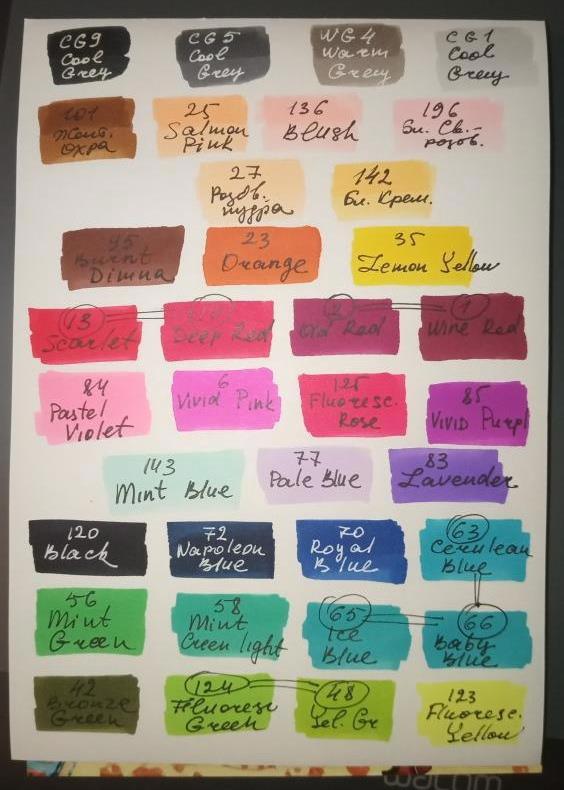 CG9
Cool
Grey
CG5
Cool
Grey
WG4
Warm
Grey
CG1
Cool
Grey
101
Охра
25
Salmon
Pink
136
Blush
196
Бл. Св.-
розов.
27
Розов.
пудра
142
Бл. Крем.
95
Burnt
23
Orange
35
Lemon Yellow
13
Scarlet
Deep Red
2
Old Red
1
Wine Red
84
Pastel
Violet
6
Vivid Pink
125
Fluoresc.
Rose
85
Vivid Purpl
143
Mint Blue
77
Pale Blue
83
Lavender
120
Black
72
Napoleon
Blue
70
Royal
Blue
63
Cerulean
Blue
56
Mint
Green
58
Mint
Green light
65
Ice
Blue
66
Baby
Blue
42
Bronze
Green
124
Fluoresc
Green
48
Yel. Gr
123
Fluoresc.
Yellow
wacom